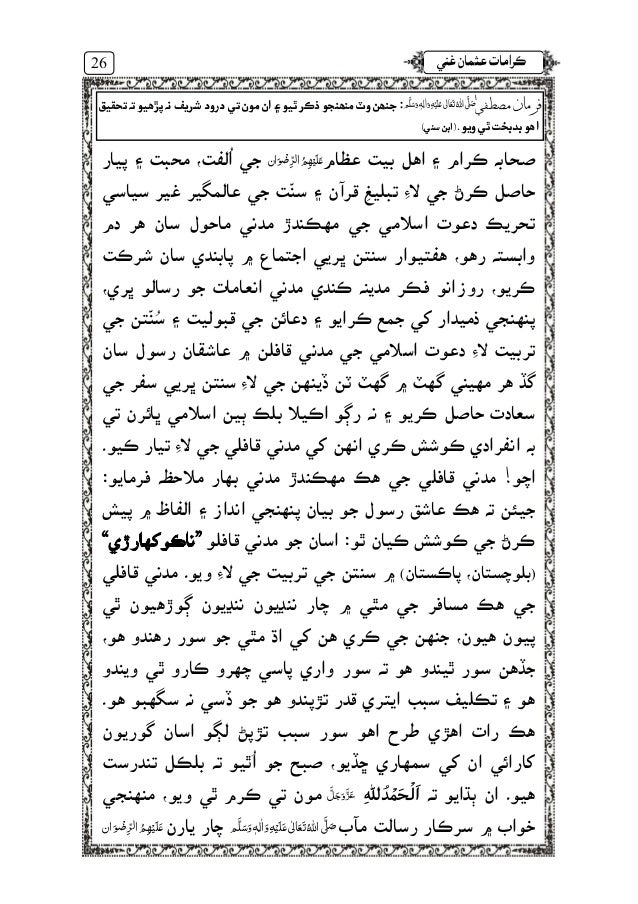 26
ڪرامات عثمان غني
فرمان مصطفيٰ صَلَّى اللهُ تَعَالٰى عَلَيْهِ وَاٰلِهٖ وَسَلَّم: جنهن وٽ منهنجو ذڪر ٿيو ۽ ان مون تي درود شريف نہ پڙهيو تہ تحقيق
اهو بدبخت ٿي ويو. (ابن سني)
صحابہ ڪرام ۽ اهل بيت عظام عَلَيْهِمُ الرِّضْوَان جي اُلفت، محبت ۽ پيار
حاصل ڪرڻ جي لاءِ تبليغِ قرآن ۽ سنّت جي عالمگير غير سياسي
تحريڪ دعوت اسلامي جي مهڪندڙ مدني ماحول سان هر دم
وابستہ رهو، هفتيوار سنتن ڀريي اجتماع ۾ پابندي سان شرڪت
ڪريو، روزانو فڪر مدينہ ڪندي مدني انعامات جو رسالو ڀري،
پنهنجي ذميدار کي جمع ڪرايو ۽ دعائن جي قبوليت ۽ سُنّتن جي
تربيت لاءِ دعوت اسلامي جي مدني قافلن ۾ عاشقان رسول سان
گڏ هر مهيني گهٽ ۾ گهٽ ٽن ڏينهن جي لاءِ سنتن ڀريي سفر جي
سعادت حاصل ڪريو ۽ نہ رڳو اڪيلا بلڪ ٻين اسلامي ڀائرن تي
بہ انفرادي ڪوشش ڪري انهن کي مدني قافلي جي لاءِ تيار ڪيو.
اچو! مدني قافلي جي هڪ مهڪندڙ مدني بهار ملاحظہ فرمايو:
جيئن تہ هڪ عاشق رسول جو بيان پنهنجي انداز ۽ الفاظ ۾ پيش
ڪرڻ جي ڪوشش ڪيان ٿو: اسان جو مدني قافلو ”ناڪوکهارڙي“
(بلوچستان، پاڪستان) ۾ سنتن جي تربيت جي لاءِ ويو. مدني قافلي
جي هڪ مسافر جي مٿي ۾ چار ننڍيون ننڍيون ڳوڙهيون ٿي
پيون هيون، جنهن جي ڪري هن کي اڌ مٿي جو سور رهندو هو،
جڏهن سور ٿيندو هو تہ سور واري پاسي چهرو ڪارو ٿي ويندو
هو ۽ تڪليف سبب ايتري قدر تڙپندو هو جو ڏسي نہ سگهبو هو.
هڪ رات اهڙي طرح اهو سور سبب تڙپڻ لڳو اسان گوريون
کارائي ان کي سمهاري ڇڏيو، صبح جو اُٿيو تہ بلڪل تندرست
هيو. ان ٻڌايو تہ اَلْحَمْدُلِلّٰه عَزَّوَجَلَّ مون تي ڪرم ٿي ويو، منهنجي
خواب ۾ سرڪار رسالت مآب صَلَّى اللهُ تَعَالٰى عَلَيْهِ وَاٰلِهٖ وَسَلَّم چار يارن عَلَيْهِمُ الرِّضْوَان